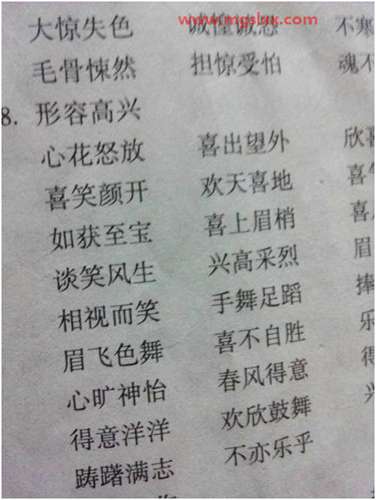 www.mgslux.com
大惊失色 诚惶诚恐 不寒
毛骨悚然 担惊受怕 魂不
8. 形容高兴
心花怒放 喜出望外 欣喜
喜笑颜开 欢天喜地 喜气
如获至宝 喜上眉梢 喜
谈笑风生 兴高采烈 眉
相视而笑 手舞足蹈 捧
眉飞色舞 喜不自胜 乐
心旷神怡 春风得意 得
得意洋洋 欢欣鼓舞
踌躇满志 不亦乐乎